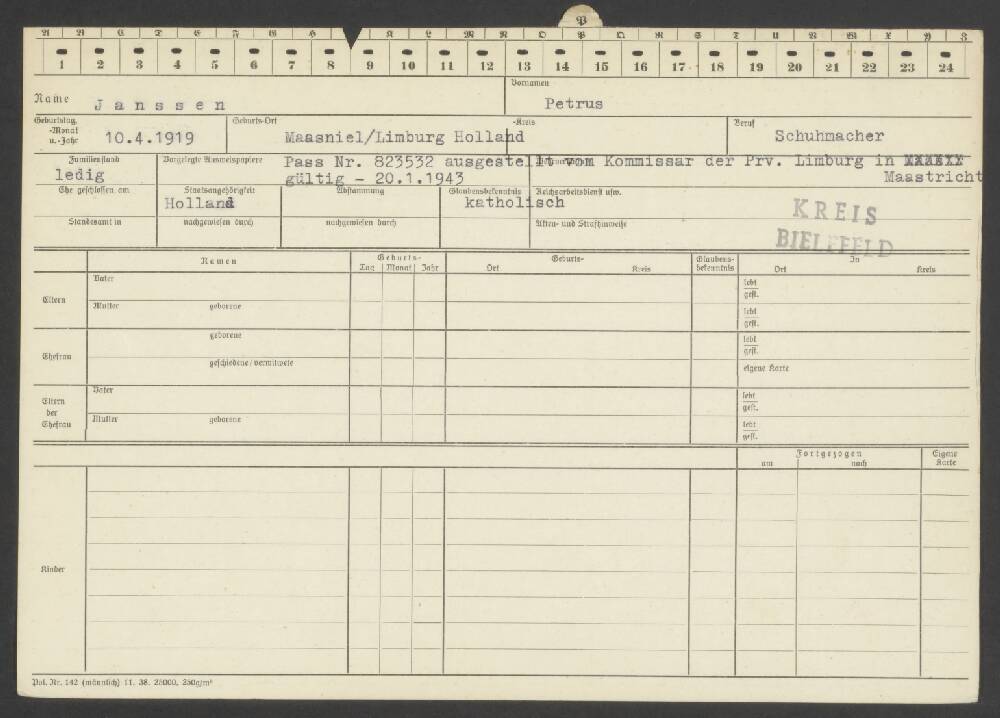 P
A B C D E F G H K L M N O P Q R S T U V W X Y Z
1 2 3 4 5 6 7 8 9 10 11 12 13 14 15 16 17 18 19 20 21 22 23 24
Name Janssen
Vornamen
Petrus
Geburtstag, -Monat u. -Jahr 10.4.1919
Geburts-Ort Maasniel/Limburg Holland
-Kreis
Beruf Schuhmacher
Familienstand ledig
Vorgelegte Ausweispapiere Pass Nr. 823532 ausgestellt vom Kommissar der Prv. Limburg in
gültig - 20.1.1943 Maastricht
Ehe geschlossen am
Staatsangehörigkeit Holland
Abstammung
Glaubensbekenntnis katholisch
Reichsarbeitsdienst usw.
Standesamt in
nachgewiesen durch
nachgewiesen durch
Akten- und Strafhinweise
KREIS
BIELEFELD
Namen
Geburts-
Tag Monat Jahr
Geburts-
Ort Kreis
Glaubens-
bekenntnis
In
Ort Kreis
Eltern
Vater
lebt
gest.
Mutter geborene
lebt
gest.
Ehefrau
geborene
lebt
gest.
geschiedene/verwitwete
eigene Karte
Eltern
der
Ehefrau
Vater
lebt
gest.
Mutter geborene
lebt
gest.
Fortgezogen
am nach
Eigene
Karte
Kinder
Pol. Nr. 142 (männlich) 11. 38. 25000, 250g/m²